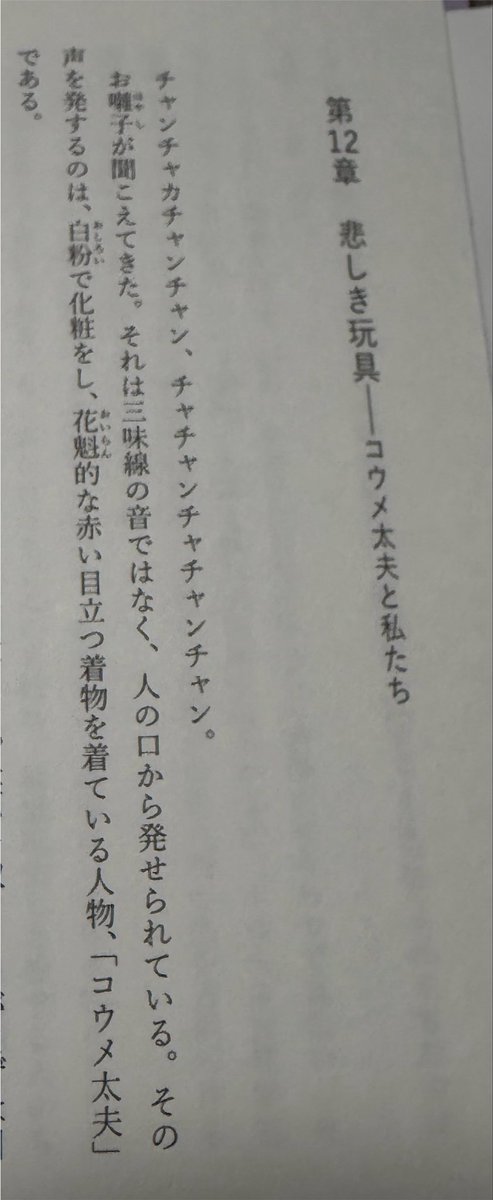 第12章　悲しき玩具――コウメ太夫と私たち
チャンチャカチャンチャン、チャチャンチャチャンチャン。
お囃子が聞こえてきた。それは三味線の音ではなく、人の口から発せられている。その
声を発するのは、白粉で化粧をし、花魁的な赤い目立つ着物を着ている人物、「コウメ太夫」
である。